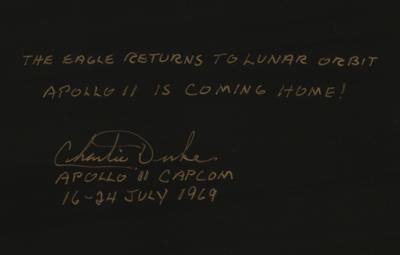 THE EAGLE RETURNS TO LUNAR ORBIT
APOLLO 11 IS COMING HOME!
Charlie Duke
APOLLO 11 CAPCOM
16-24 JULY 1969